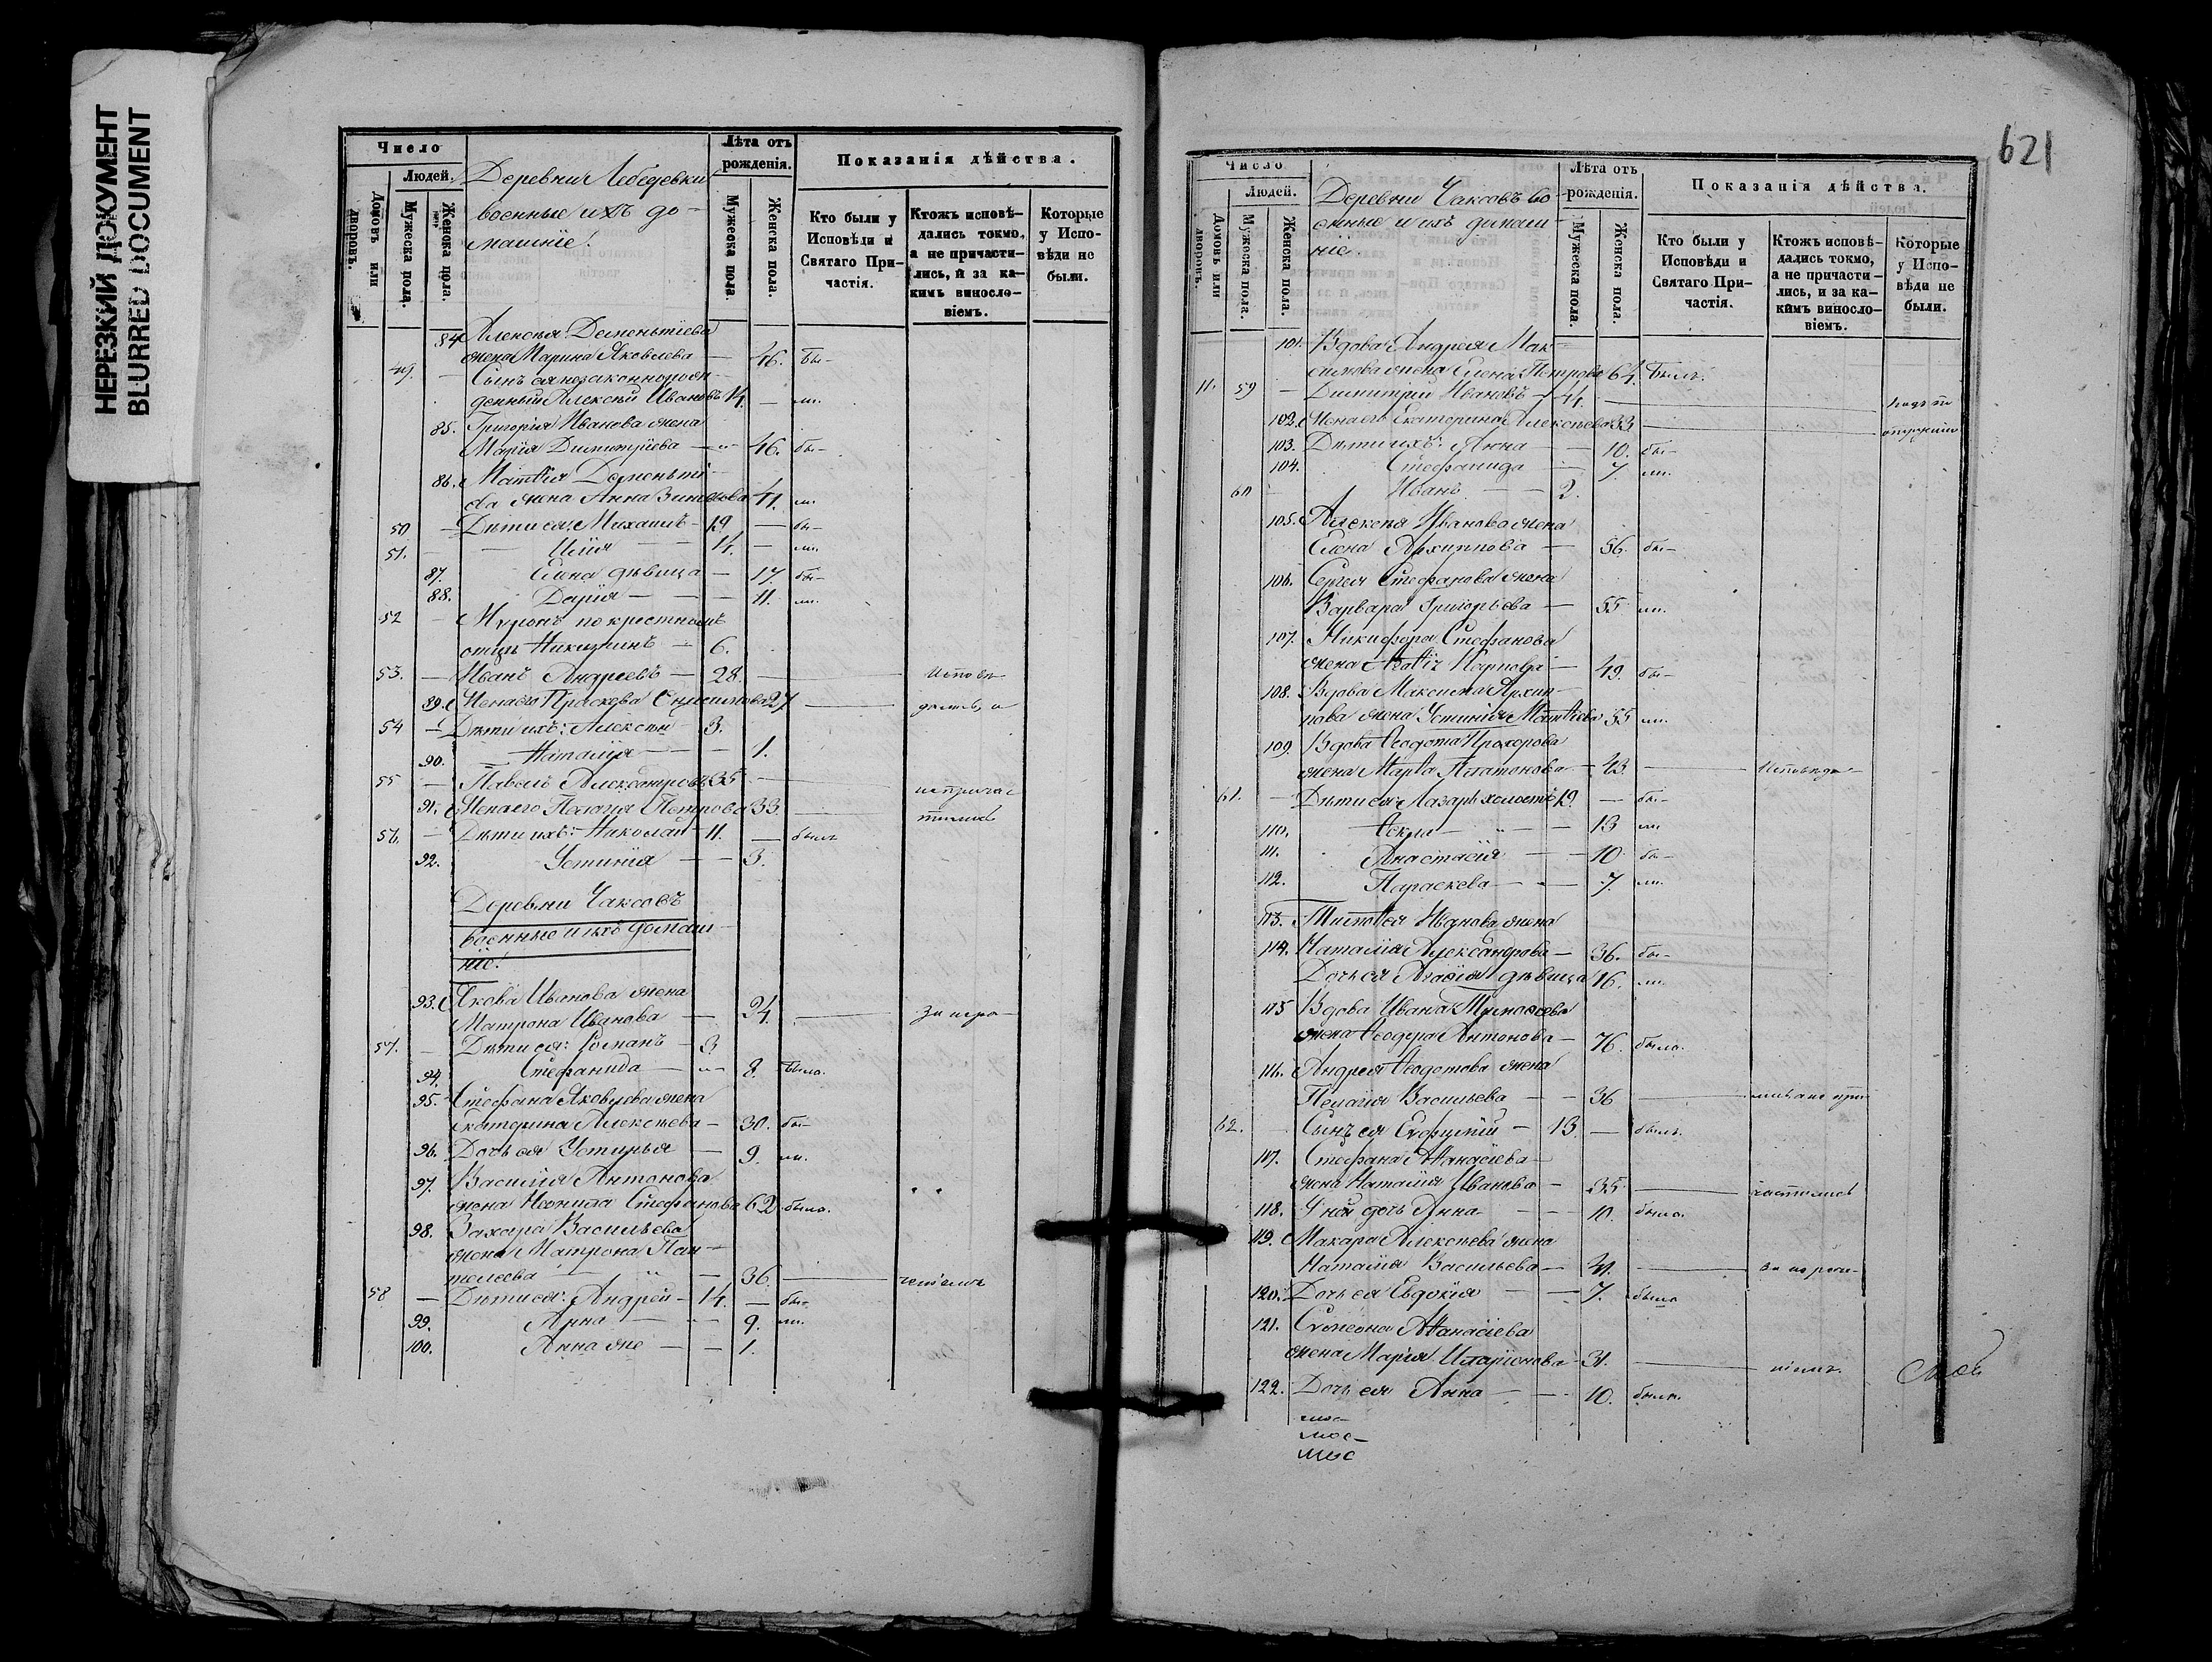 НЕРЕЗКИЙ ДОКУМЕНТ
BLURRED DOCUMENT
Число
Людей.
Домовъ или дворовъ.
Мужеска пола.
Женска пола.
Деревни Лебедевки
военные ихъ до-
машніе.
Лѣта отъ рожденія.
Мужеска пола.
Женска пола.
Показанія дѣйства.
Кто были у Исповѣди и Святаго Причастія.
Ктожъ исповѣ-
дались токмо,
а не причасти-
лись, и за ка-
кимъ винословіемъ.
Которые у Исповѣди не были.
84 Алексѣя Дементіева
жена Марина Яковлева — 46. бы-
49. — Сынъ ея незаконнорож-
денный Алексѣй Ивановъ 14. — ли.
85. Григорія Иванова жена
Марія Димитріева — 46. бы-
86. Матѳія Дементі-
ева жена Анна 41. ли.
50 — Дѣти ея: Михаилъ — 19 — бы-
51. — Илія — 14. — ли.
87. Елена дѣвица — 17. бы-
88. Дарія — 11. ли.
52 — Миронъ по крестному
отцу Никитинъ — 6.
53. — Иванъ Андреевъ — 28. — исповѣ-
89. Жена его Праскева Онисимова 27 — дались, а
54 — Дѣти ихъ: Алексѣй — 3.
90. Наталія — 1.
55 — Павелъ Александровъ 35. — не прича-
91. Жена его Пелагія Петрова 33. — стились
56. — Дѣти ихъ: Николай — 11. — былъ
92. Устинія — 3.
Деревни Чаксовъ
военные и ихъ домаш-
ніе.
93. Якова Иванова жена
Матрона Иванова — 24. — за нера-
57. — Дѣти ея: Романъ — 3
94. Стефанида — 8. была.
95. Стефана Яковлева жена
Екатерина Алексѣева — 30. бы-
96. Дочь ея Устинья — 9. ли.
97. Василія Антонова
жена Неонила Стефанова 62 была.
98. Захара Васильева
жена Матрона Пан-
телеева — 36. —
58 — Дѣти ея: Андрей — 14. — бы-
99. Анна — 9. ли.
100. Анна же — 1.
621
Число
Людей.
Домовъ или дворовъ.
Мужеска пола.
Женска пола.
Деревни Чаксовъ во-
енные и ихъ домаш-
ніе.
Лѣта отъ рожденія.
Мужеска пола.
Женска пола.
Показанія дѣйства.
Кто были у Исповѣди и Святаго Причастія.
Ктожъ исповѣ-
дались токмо,
а не причасти-
лись, и за ка-
кимъ винословіемъ.
Которые у Исповѣди не были.
101. Вдова Андрея Мак-
симова жена Елена Петрова 64. была.
11. 59 — Димитрій Ивановъ — 44. —
102. Жена его Екатерина Алексѣева 33. —
103. Дѣти ихъ: Анна — 10. бы-
104. Стефанида — 7. ли.
60 — Иванъ — 2.
105. Алексѣя Иванова жена
Елена Архиппова — 56. бы-
106. Сергея Стефанова жена
Варвара Григорьева — 55 ли.
107. Никифора Стефанова
жена Агаѳія Карпова — 49. бы-
108. Вдова Максима Архип-
пова жена Устинія Матѳіева 55 ли.
109. Вдова Ѳеодота Прохорова
жена Марѳа Платонова — 43. — Исповѣда-
61. — Дѣти ея Лазарь холостъ 19. — бы-
110. Ѳекла — 13 ли
111. Анастасія — 10. бы-
112. Параскева — 7. ли.
113. Тимоѳея Иванова жена
114. Наталія Александрова — 36. бы-
Дочь ея Агаѳія дѣвица 16. ли.
115 Вдова Ивана Тимоѳеева
жена Ѳеодора Антонова — 76. была.
116. Андрея Ѳеодотова жена
Пелагія Васильева — 36 — лись а не при-
62. — Сынъ ея Евфимій — 13. — былъ.
117. Стефана Аѳанасіева
жена Наталія Иванова — 35. — частились
118. У ней дочь Анна — 10. была.
119. Макара Алексѣева жена
Наталія Васильева — 41. — за нера-
120. Дочь ея Евдокія — 7. была
121. Симеона Аѳанасіева
жена Марія Иларіонова 31. —
122. Дочь ея Анна — 10. была.